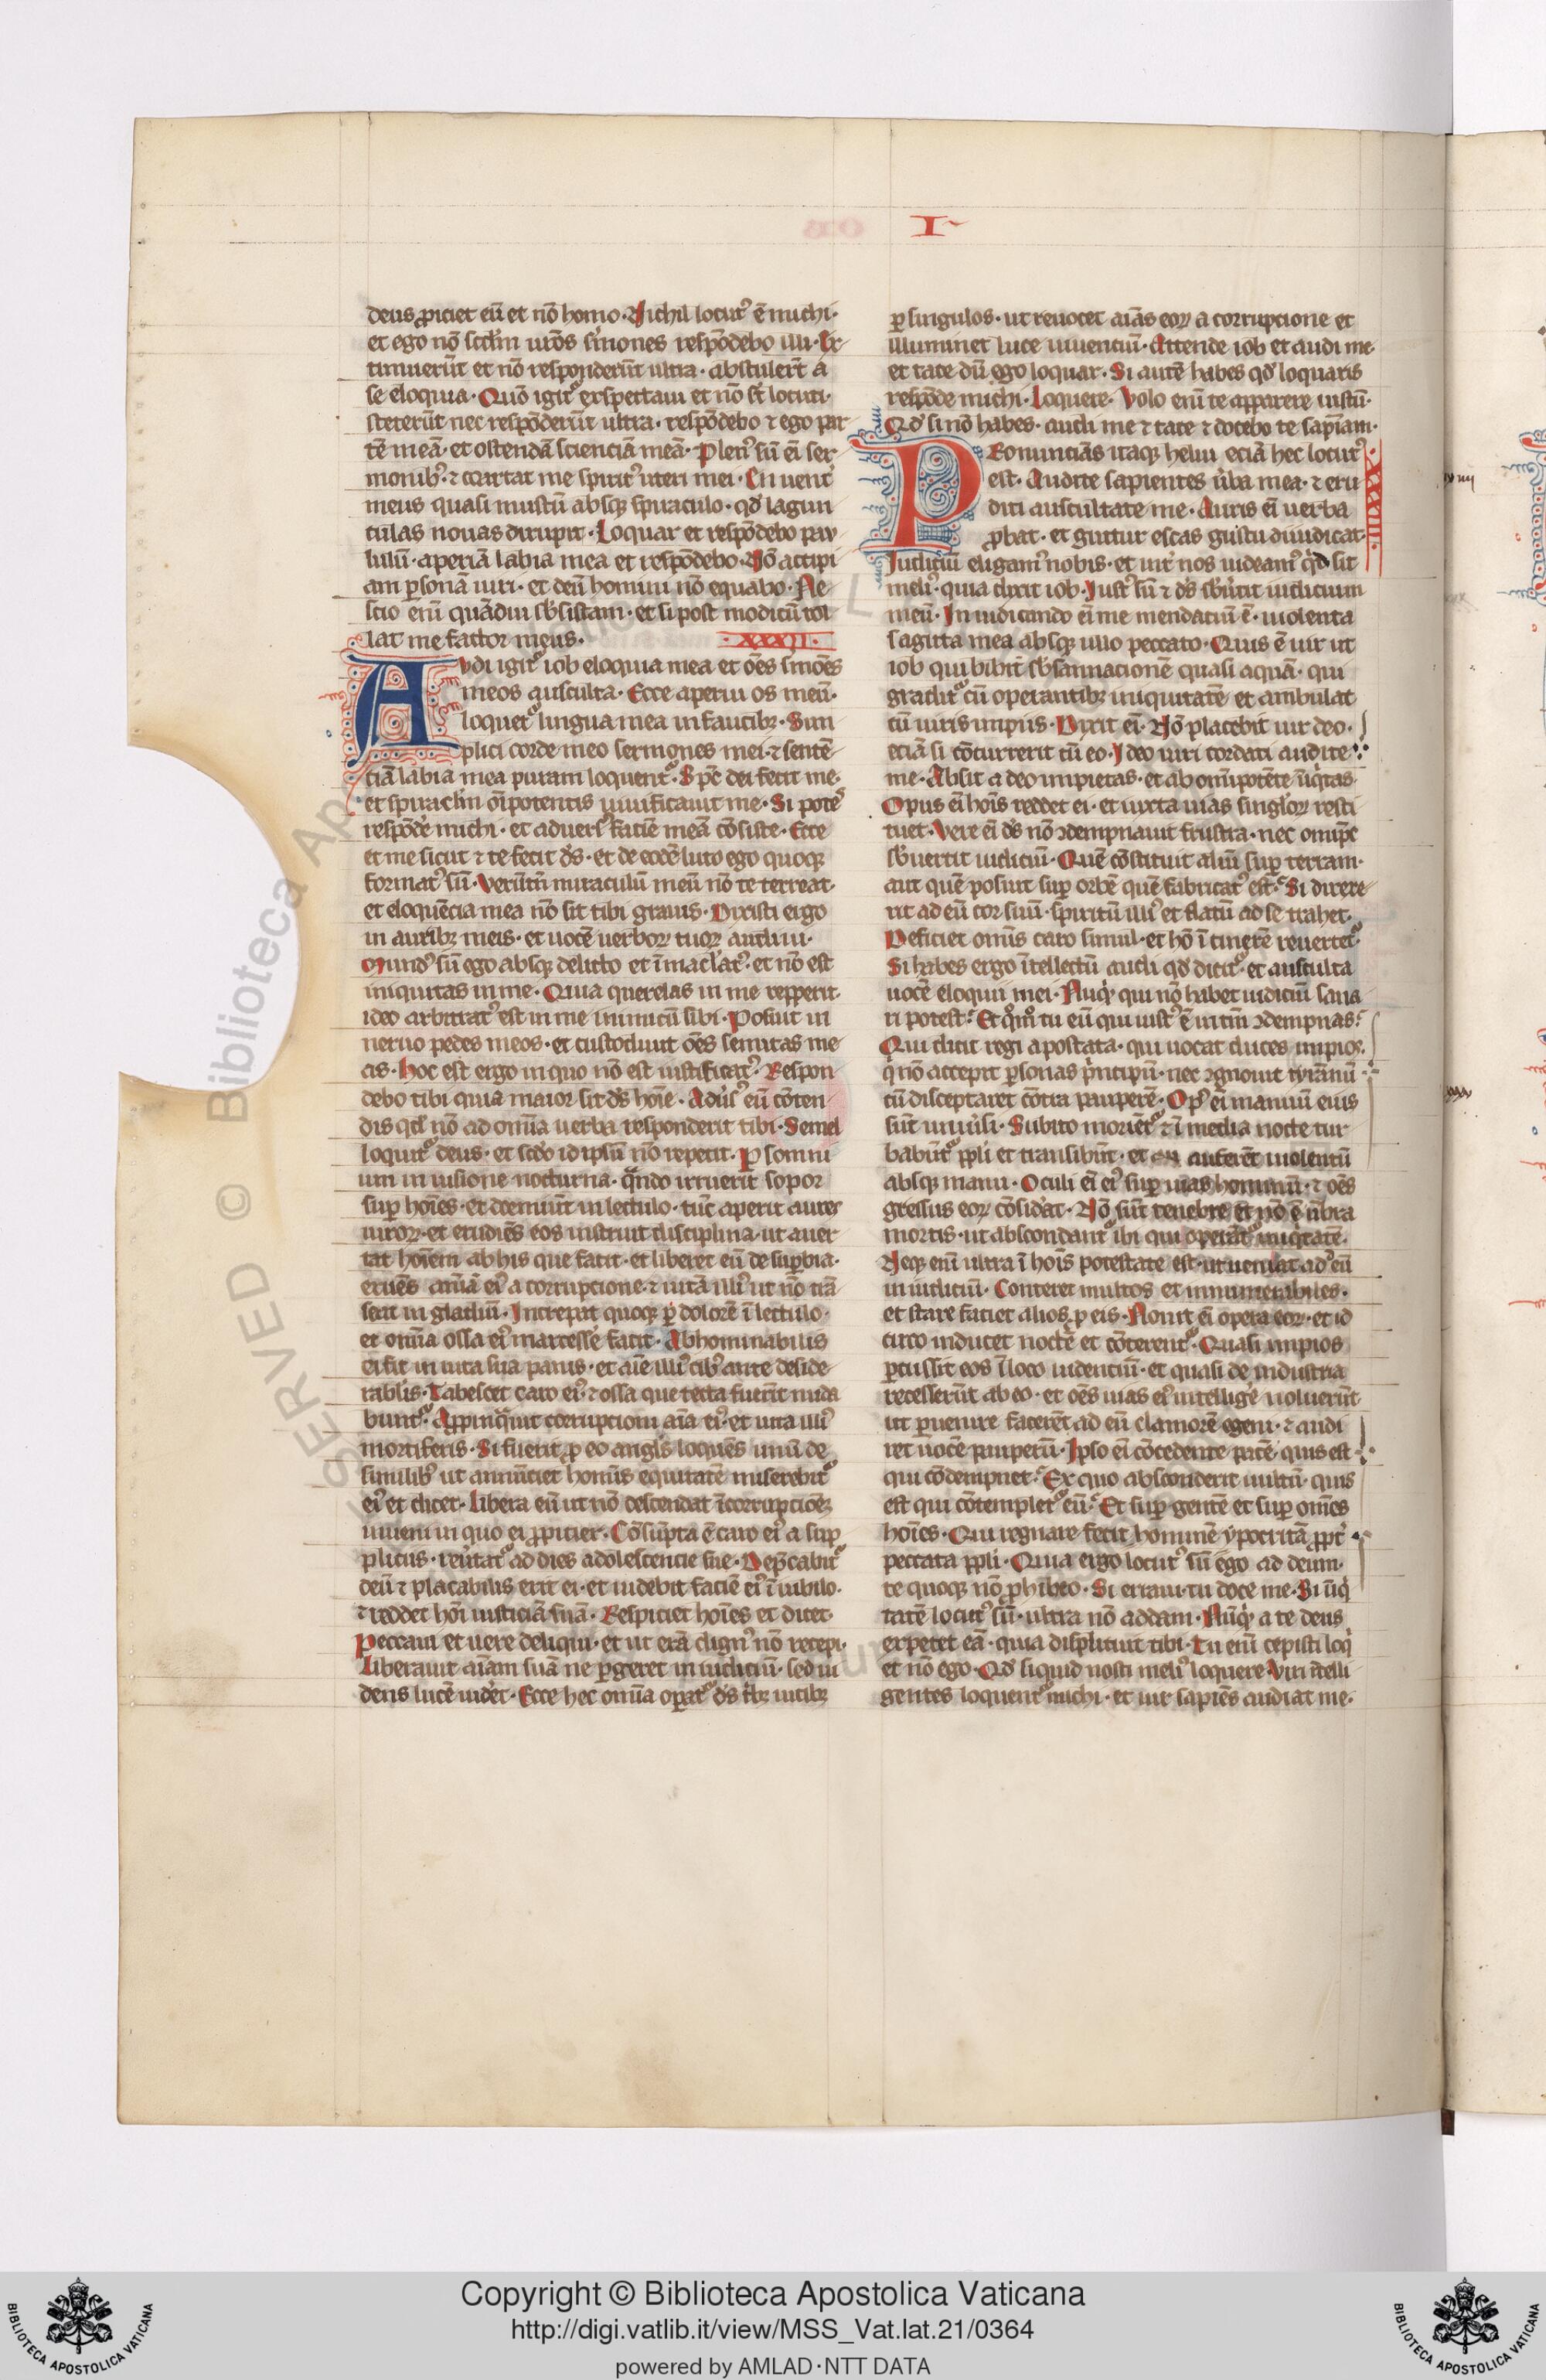 I
deus ꝓiciet eū et nō homo · Nichil locut᷒ ē michi ·
et ego nō scd̄m ur̄os s̄mones respōdebo illi · Ex
timuerūt et nō responderūt ultra · abstulerūt a
se eloquia · Quō igit᷑ exspectaui et nō sūt locuti ·
steterūt nec respōderūt ultra · respōdebo ⁊ ego par
tē meā · et ostendā scienciā meā · Plen᷒ sū eī ser
monib᷒ · ⁊ coartat me spirit᷒ uteri mei · En uent̾
meus quasi mustū absqꝫ spiraculo · qd̄ lagun
culas nouas dirupit · Loquar et respōdebo pau
lulū · aperiā labia mea et respōdebo · Nō accipi
am ꝑsonā uiri · et deū homini nō equabo · Ne
scio enī quādiu sb̄sistam · et si post modicū tol
lat me factor meus · xxxiii ·
Audi igit᷑ iob eloquia mea et om̄es s̄mōes
meos ausculta · Ecce aperui os meū ·
loquet᷑ lingua mea in faucibꝫ · Sim
plici corde meo sermones mei · ⁊ sentē
ciā labia mea puram loquent᷑ · Sp̄c dei fecit me ·
et spiraclm̄ oīpotentis uiuificauit me · Si potes
respōde michi · et aduers᷒ faciē meā cōsiste · Ecce
et me sicut ⁊ te fecit d̄s · et de eodē luto ego quoqꝫ
format᷒ sū · Verūtn̄ miraculū meū nō te terreat ·
et eloquēcia mea nō sit tibi grauis · Dixisti ergo
in auribꝫ meis · et uocē uerborꝝ tuorꝝ audiui ·
Mund᷒ sū ego absqꝫ delicto et īmaclat᷒ · et nō est
iniquitas in me · Quia querelas in me repperit ·
ideo arbitrat᷒ est in me inimicū sibi · Posuit in
neruo pedes meos · et custodiuit om̄es semitas me
as · Hoc est ergo in quo nō est iustificat᷒ · Respon
debo tibi quia maior sit d̄s hoīe · Adūs᷒ eū cōten
dis qd̄ nō ad om̄ia uerba responderit tibi · Semel
loquit᷑ deus · et scd̄o id ip̄sū nō repetit · Per somni
um in uisione nocturna · qn̄do irruerit sopor
suꝑ hoīes · et dormiūt in lectulo · tūc aperit aures
uirorꝝ · et erudiēs eos instruit disciplina · ut auer
tat hoīem ab his que facit · et liberet eū de suꝑbia ·
eruēs aīā ei᷒ a corrupcione · ⁊ uitā illi᷒ ut nō trā
seat in gladiū · Increpat quoqꝫ ꝑ dolorē ī lectulo ·
et om̄ia ossa ei᷒ marcesse facit · Abhominabilis
ei fit in uita sua panis · et aīe illi᷒ cib᷒ ante deside
rablis · Tabescet caro ei᷒ · ⁊ ossa que tecta fuerāt nuda
bunt᷑ · Appinq̄uit corrupcioni aīa ei᷒ · et uita illi᷒
mortiferis · Si fuerit ꝓ eo angls loquēs unū de
similib᷒ ut annūciet homīs equitatē miserebit᷑
ei᷒ et dicet · Libera eū ut nō descendat īcorrupcionē
inueni in quo ei ꝓpicier · Cōsūpta ē caro ei᷒ a supp
pliciis · reu̾tat᷑ ad dies adolescencie sue · Dep̄cabit᷑
deū ⁊ placabilis erit ei · et uidebit faciē ei᷒ ī iubilo ·
⁊ reddet hoī iusticiā suā · Respiciet hoīes et dicet ·
Peccaui et uere deliqui · et ut erā dign᷒ nō recepi ·
Liberauit aīam suā ne ꝑgeret in interitū · sed ui
uens lucē uidet · Ecce hec om̄ia oꝑat᷑ d̄s tribꝫ uicibꝫ
ꝑ singulos · ut reuocet aīas eorꝝ a corrupcione et
illuminet luce uiuenciū · Attende iob et audi me ·
et tace dū ego loquar · Si autē habes qd̄ loquaris
respōde michi · Loquere · Volo enī te apparere iustū ·
Qd̄ si nō habes · audi me ⁊ tace ⁊ docebo te sapīam ·
Pronunciās itaqꝫ heliu eciā hec locut᷒
est · Audite sapientes ūba mea · ⁊ eru
diti auscultate me · Auris eī uerba
ꝓbat · et guttur escas gustu diiudicat ·
xxxiiii ·
Iudiciū eligam᷒ nobis · et int̾ nos uideam᷒ qͥd sit
meli᷒ · quia dixit iob · Iust᷒ sū ⁊ d̄s sb̄uertit iudicium
meū · In iudicando eī me mendaciū ē · uiolenta
sagitta mea absqꝫ ullo peccato · Quis ē uir ut
iob qui bibit sb̄sannacionē quasi aquā · qui
gradit᷑ cū operantibꝫ iniquitatē et ambulat
cū uiris impiis · Dixit eī · Nō placebit uir deo ·
eciā si cōcurrerit cū eo · Ideo uiri cordati audite
me · Absit a deo impietas · et ab om̄ipotēte iniqͥtas ·
Opus eī hoīs reddet ei · et iuxta uias singlorꝝ resti
tuet · Vere eī d̄s nō ꝯdempnauit frustra · nec omīpc̄
sb̄uertit iudiciū · Quē cōstituit aliū suꝑ terram ·
aut quē posuit suꝑ orbē quē fabricat᷒ est · Si direxe
rit ad eū cor suū · spiritū illi᷒ et flatū ad se trahet ·
Deficiet omīs caro simul · et hō ī cinerē reuertet᷑
Si habes ergo ītellectū audi qd̄ dicit᷑ · et ausculta
uocē eloquii mei · Nūqͥd qui nō habet iudiciū sana
ri potest · Et quōm̄ tu eū qui iust᷒ ē in tm̄ ꝯdempnas ·
Qui dicit regi apostata · qui uocat duces impios ·
qͥ nō accepit ꝑsonas pͥncipū · nec ꝯgnouit tyrānū
cū disceptaret cōtra pauperē · Op᷒ eī manuū eius
sūt uniūsi · Subito moriēt᷑ ⁊ ī media nocte tur
babūt᷑ ppl̄i et transibūt · et auferēt uiolentū
absqꝫ manu · Oculi eī ei᷒ suꝑ uias hominū · ⁊ om̄es
gressus eorꝝ cōsiderat · Nō sūt tenebre et nō ē ūbra
mortis · ut abscondant᷑ ibi qui operāt᷑ iniqͥtatē ·
Neqꝫ enī ultra ī hoīs potestate est · ut ueniat ad d̄eū
in iudiciū · Conteret multos et innumerabiles ·
et stare faciet alios ꝓ eis · Nouit eī opera eorꝝ · et id
circo inducet noctē et cōterent᷑ · Quasi impios
ꝑcussit eos ī loco uidenciū · et quasi de industria
recesserūt ab eo · et om̄es uias ei᷒ intelligē noluerūt ·
ut ꝑuenire facerēt ad eū clamorē egeni · ⁊ audi
ret uocē pauperū · Ipso eī cōcedente pacē · quis est
qui cōdempnet · Ex quo absconderit uultū · quis
est qui cōtemplet᷑ eū · Et suꝑ gentē et suꝑ omēs
hoīes · Qui regnare fecit hominē ypocritā ppt̾
peccata ppl̄i · Quia ergo locut᷒ sū ego ad deum ·
te quoqꝫ nō ꝓhibeo · Si erraui · tu doce me · Si īiqͥ
tatē locut᷒ sū · ultra nō addam · Nūqͥd a te deus
expetet eā · quia displicuit tibi · Tu enī cepisti loqͥ
et nō ego · Qd̄ si quid nosti meli᷒ loquere · Viri ītelli
gentes loquent᷑ michi · et uir sapiēs audiat me ·
Copyright © Biblioteca Apostolica Vaticana
http://digi.vatlib.it/view/MSS_Vat.lat.21/0364
powered by AMLAD·NTT DATA
BIBLIOTECA APOSTOLICA VATICANA
BIBLIOTECA APOSTOLICA VATICANA